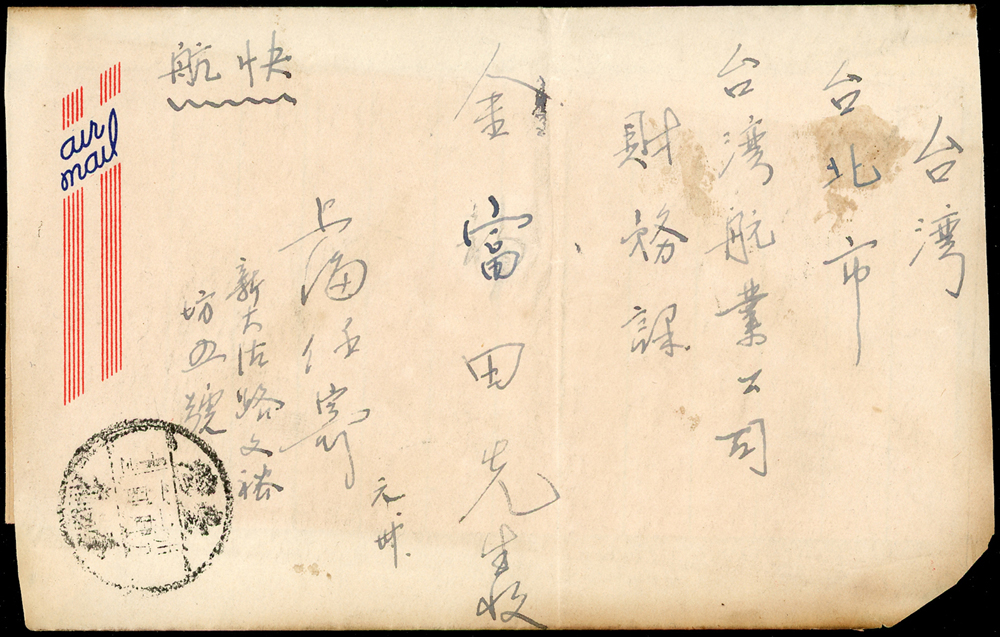 台湾
台北市
台湾航業公司
財務課
金富田先生收
上海任寄
元.卅.
新大沽路文裕
坊五號
快航
air
mail